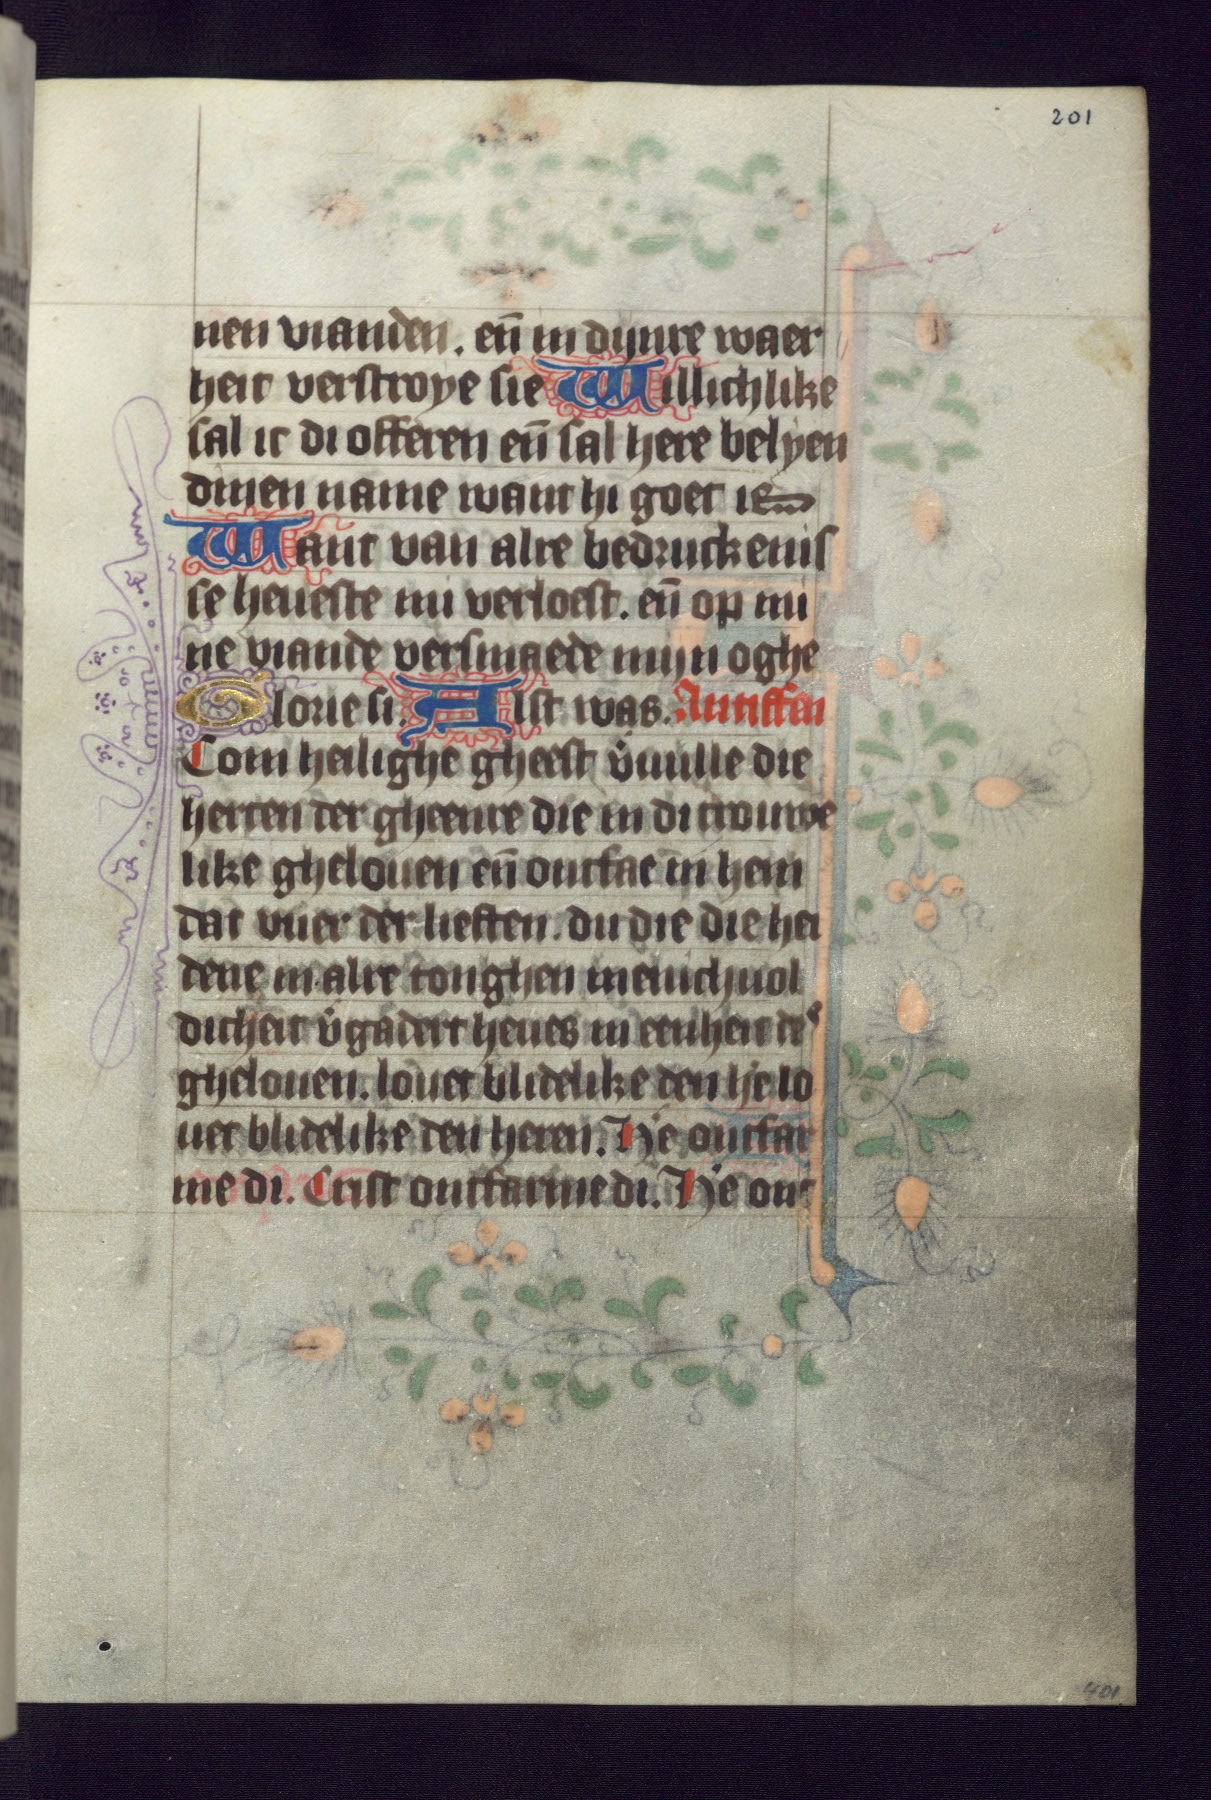 201
nen vianden. en̄ in dijnre waer
heit verstroye sie Willichlike
sal ic di offeren en̄ sal here belyen
dinen name want hi goet is
Want van alre bedruckenis
se heueste mi verloest. en̄ op mi
ne viande versmaede mijn oghe
Glorie si. Alst was. Antiffen
Com heilighe gheest v̄uulle die
herten der gheenre die in di trouwe
like ghelouen en̄ ontfae in hem
dat vuer der lieften. du die die hei
dene in alre tonghen menichuol
dicheit v̄gadert heues in eenheit des
ghelouen. louet blidelike den he lo
uet blidelike den heren. He ontfar
me di. Crist ontfarme di. He ont
401